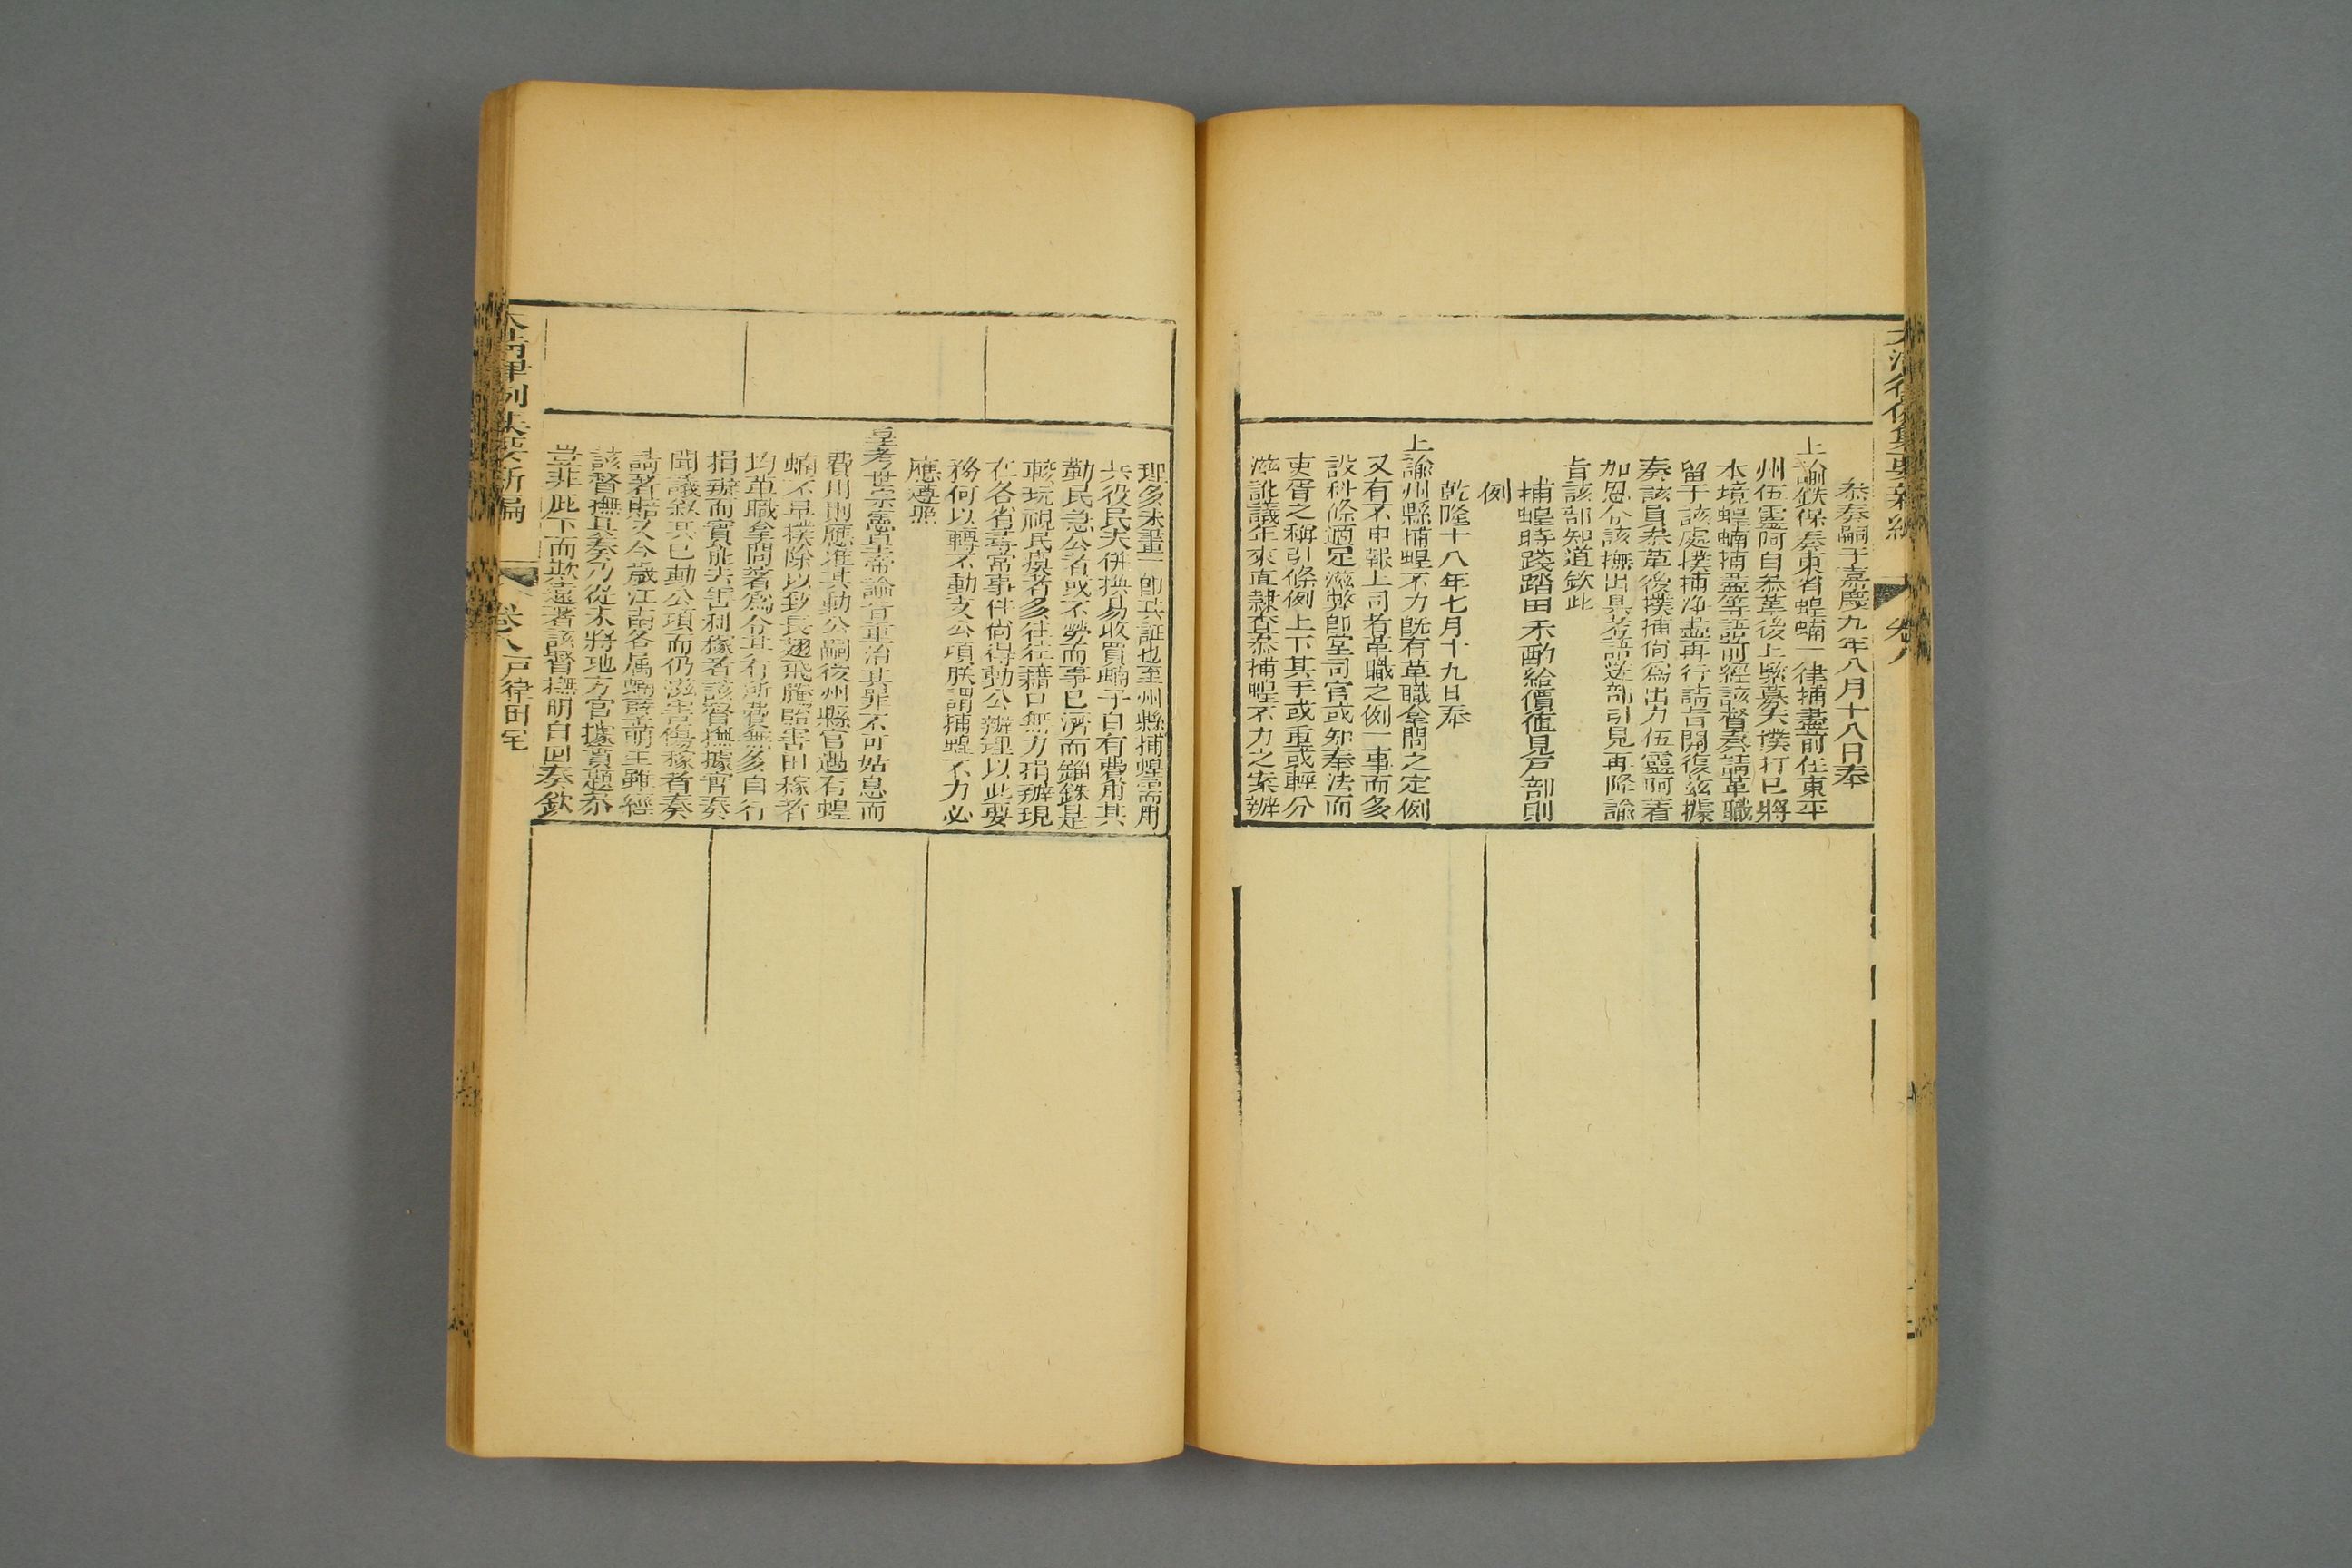 叅奏嗣于嘉慶九年八月十八日奉
上諭鉄保奏東省蝗蝻一律捕盡前任東平
州伍靈阿自叅革後上緊募夫撲打已將
本境蝗蝻捕盡等語前經該督奏請革職
留于該處撲捕净盡再行請旨開復兹據
奏該員叅革後撲捕尙爲出力伍靈阿着
加恩令該撫出具考語送部引見再降諭
旨該部知道欽此
捕蝗時踐踏田禾酌給價值見戶部則
例
乾隆十八年七月十九日奉
上諭州縣捕蝗不力旣有革職拿問之定例
又有不申報上司者革職之例一事而多
設科條適足滋弊卽堂司官或知奉法而
吏胥之稱引條例上下其手或重或輕分
滋訛議年來直隷查叅捕蝗不力之案辦
大淸律例集要新編 卷八
理多未畫一卽其証也至州縣捕蝗需用
兵役民夫併換易收買蝻子自有費用其
勤民急公者或不勞而事已濟而錙銖是
較玩視民瘼者多往往藉口無力捐辦現
在各省尋常事件尙得動公辦理以此要
務何以轉不動支公項朕謂捕蝗不力必
應遵照
皇考世宗憲皇帝諭旨重治其罪不可姑息而
費用則應准其動公嗣後州縣官遇有蝗
蝻不早撲除以致長翅飛騰貽害田稼者
均革職拿問著爲令其有所費無多自行
捐辦而實能去害利稼者該督撫據實奏
聞議叙其已動公項而仍滋害傷稼者奏
請著賠又今歲江南各属蝻孽萌生雖經
該督撫具奏乃從未將地方官據實題叅
豈非庇下而欺遠著該督撫明白回奏欽
大淸律例集要新編 卷八 戸律田宅